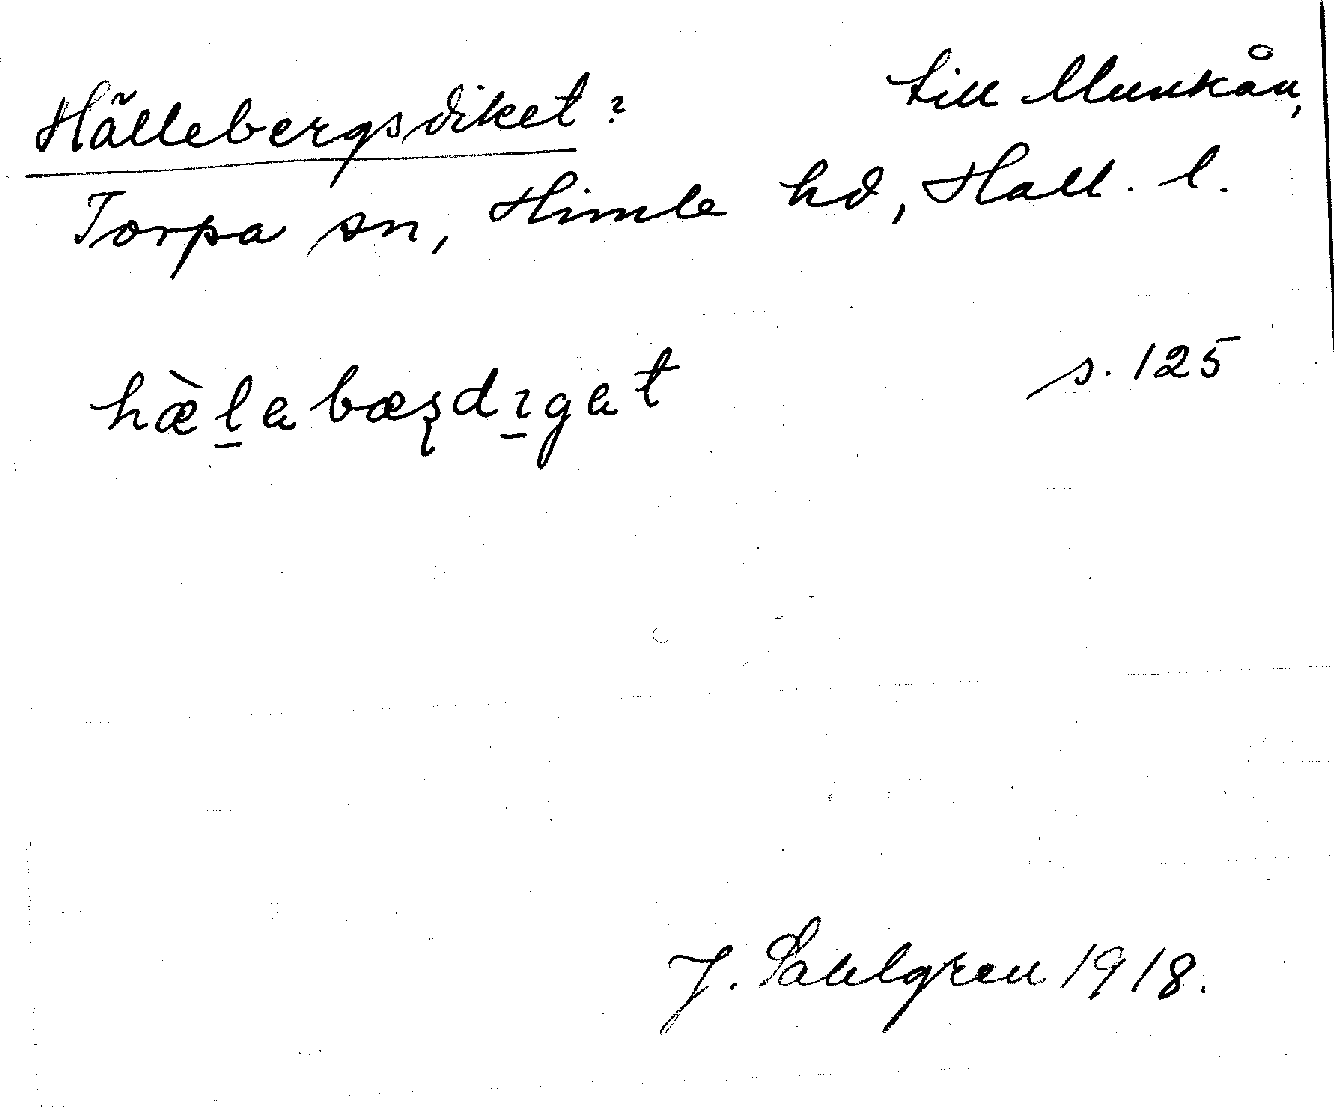 Hällebergsdiket? till Munkån,
Torpa sn, Himle hd, Hall. l.
hæ̀l̠abæʂdɪ̠gat s. 125
J. Sahlgren 1918.